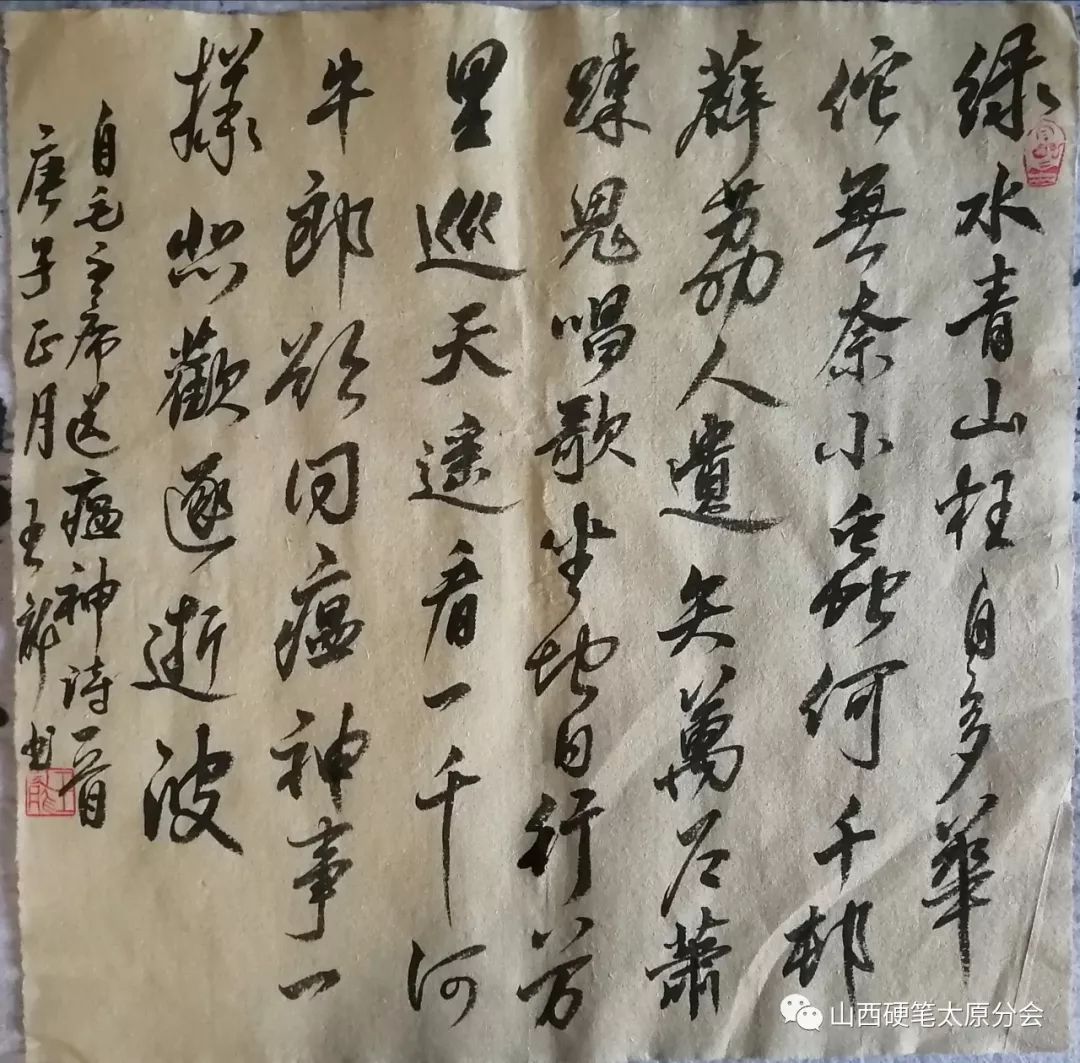 绿水青山枉自多華
佗無奈小蟲何千邨
薜荔人遺矢萬户蕭
踈鬼唱歌坐地日行八万
里巡天遥看一千河
牛郎欲问瘟神事一
樣悲歡逐逝波
自毛主席送瘟神詩一首
庚子正月王龍书
山西硬笔太原分会